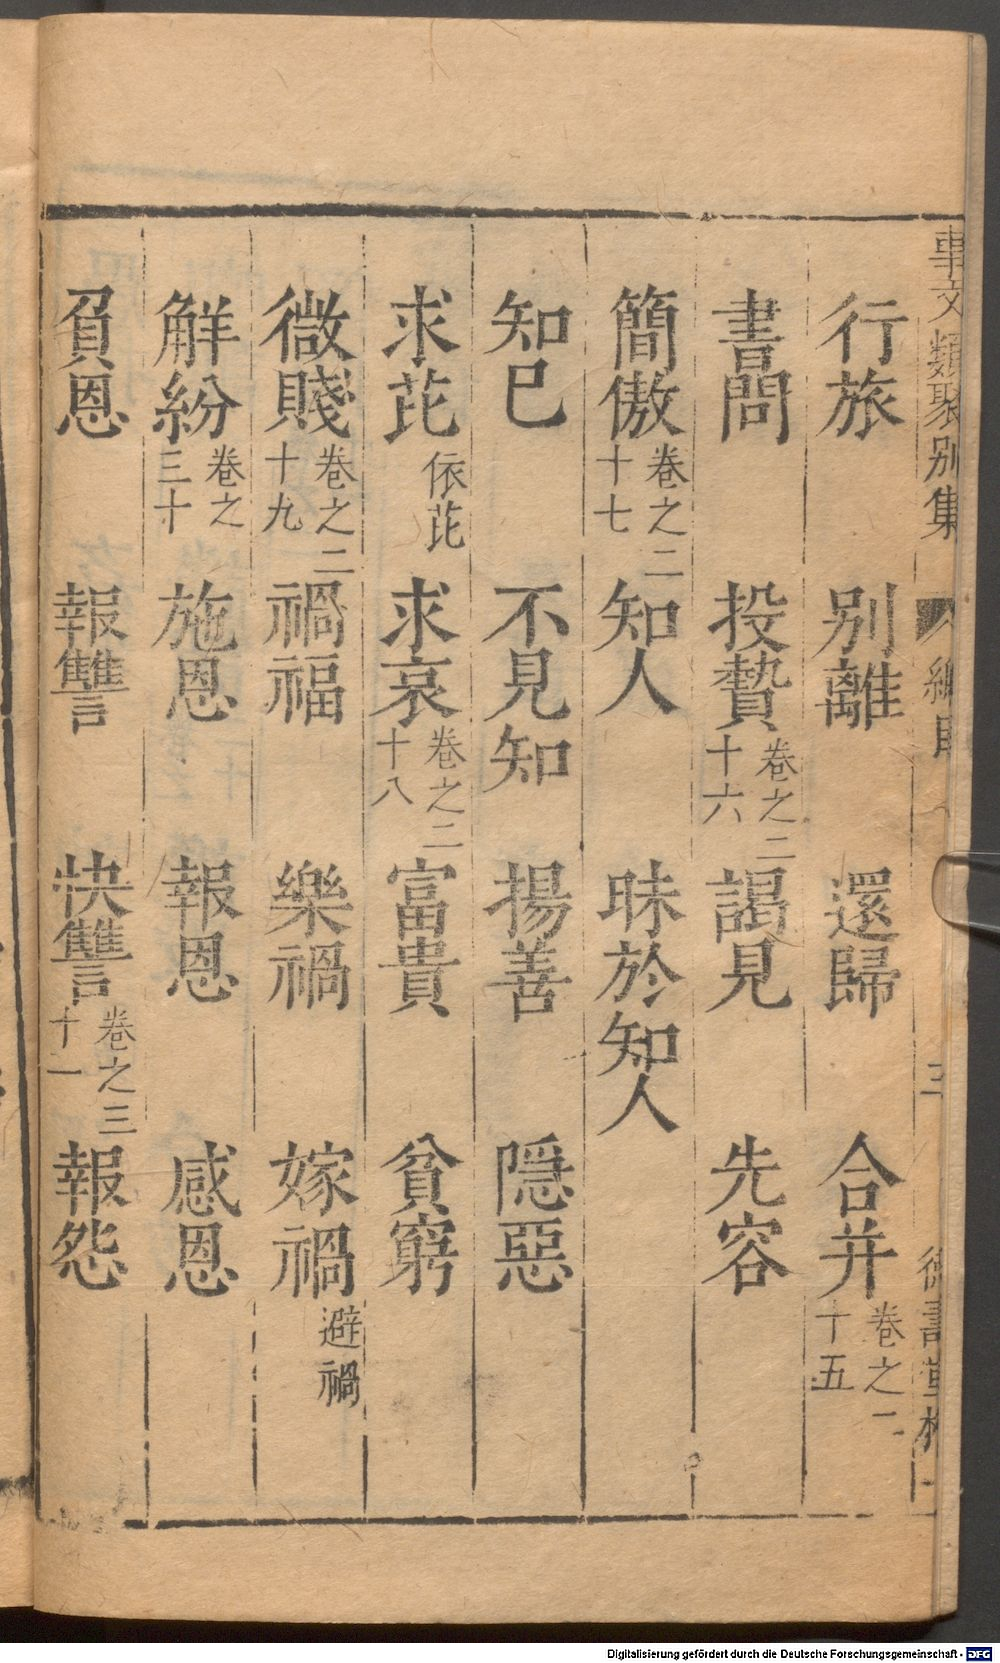 事文類聚別集
編目
三
德壽堂梓
行旅 別離 還歸 合并 卷之二十五
書問 投贄 卷之二十六 謁見 先容
簡傲 卷之二十七 知人 昧於知人
知己 不見知 揚善 隱惡
求芘 依芘 求哀 卷之二十八 富貴 貧窮
微賤 卷之二十九 禍福 樂禍 嫁禍 避禍
解紛 卷之三十 施恩 報恩 感恩
負恩 報讐 快讐 卷之三十一 報怨
Digitalisierung gefördert durch die Deutsche Forschungsgemeinschaft - DFG